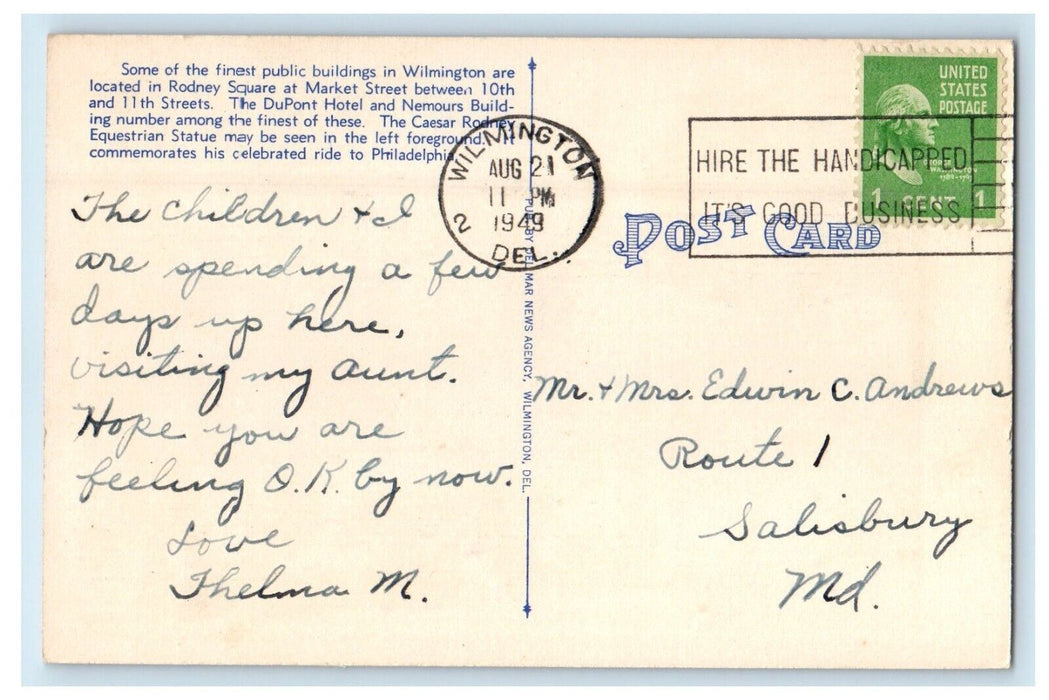 Some of the finest public buildings in Wilmington are
located in Rodney Square at Market Street between 10th
and 11th Streets. The DuPont Hotel and Nemours Build-
ing number among the finest of these. The Caesar Rodney
Equestrian Statue may be seen in the left foreground. It
commemorates his celebrated ride to Philadelphia.
The children & I
are spending a few
days up here,
visiting my aunt.
Hope you are
feeling O.K. by now.
Love
Thelma M.
WILMINGTON
AUG 21
11 PM
1949
2
DEL.
PUB. BY DEL MAR NEWS AGENCY, WILMINGTON, DEL.
HIRE THE HANDICAPPED
IT'S GOOD BUSINESS
UNITED
STATES
POSTAGE
GEORGE
WASHINGTON
1789-1797
1 CENT 1
POST CARD
Mr. & Mrs. Edwin C. Andrews
Route 1
Salisbury
Md.